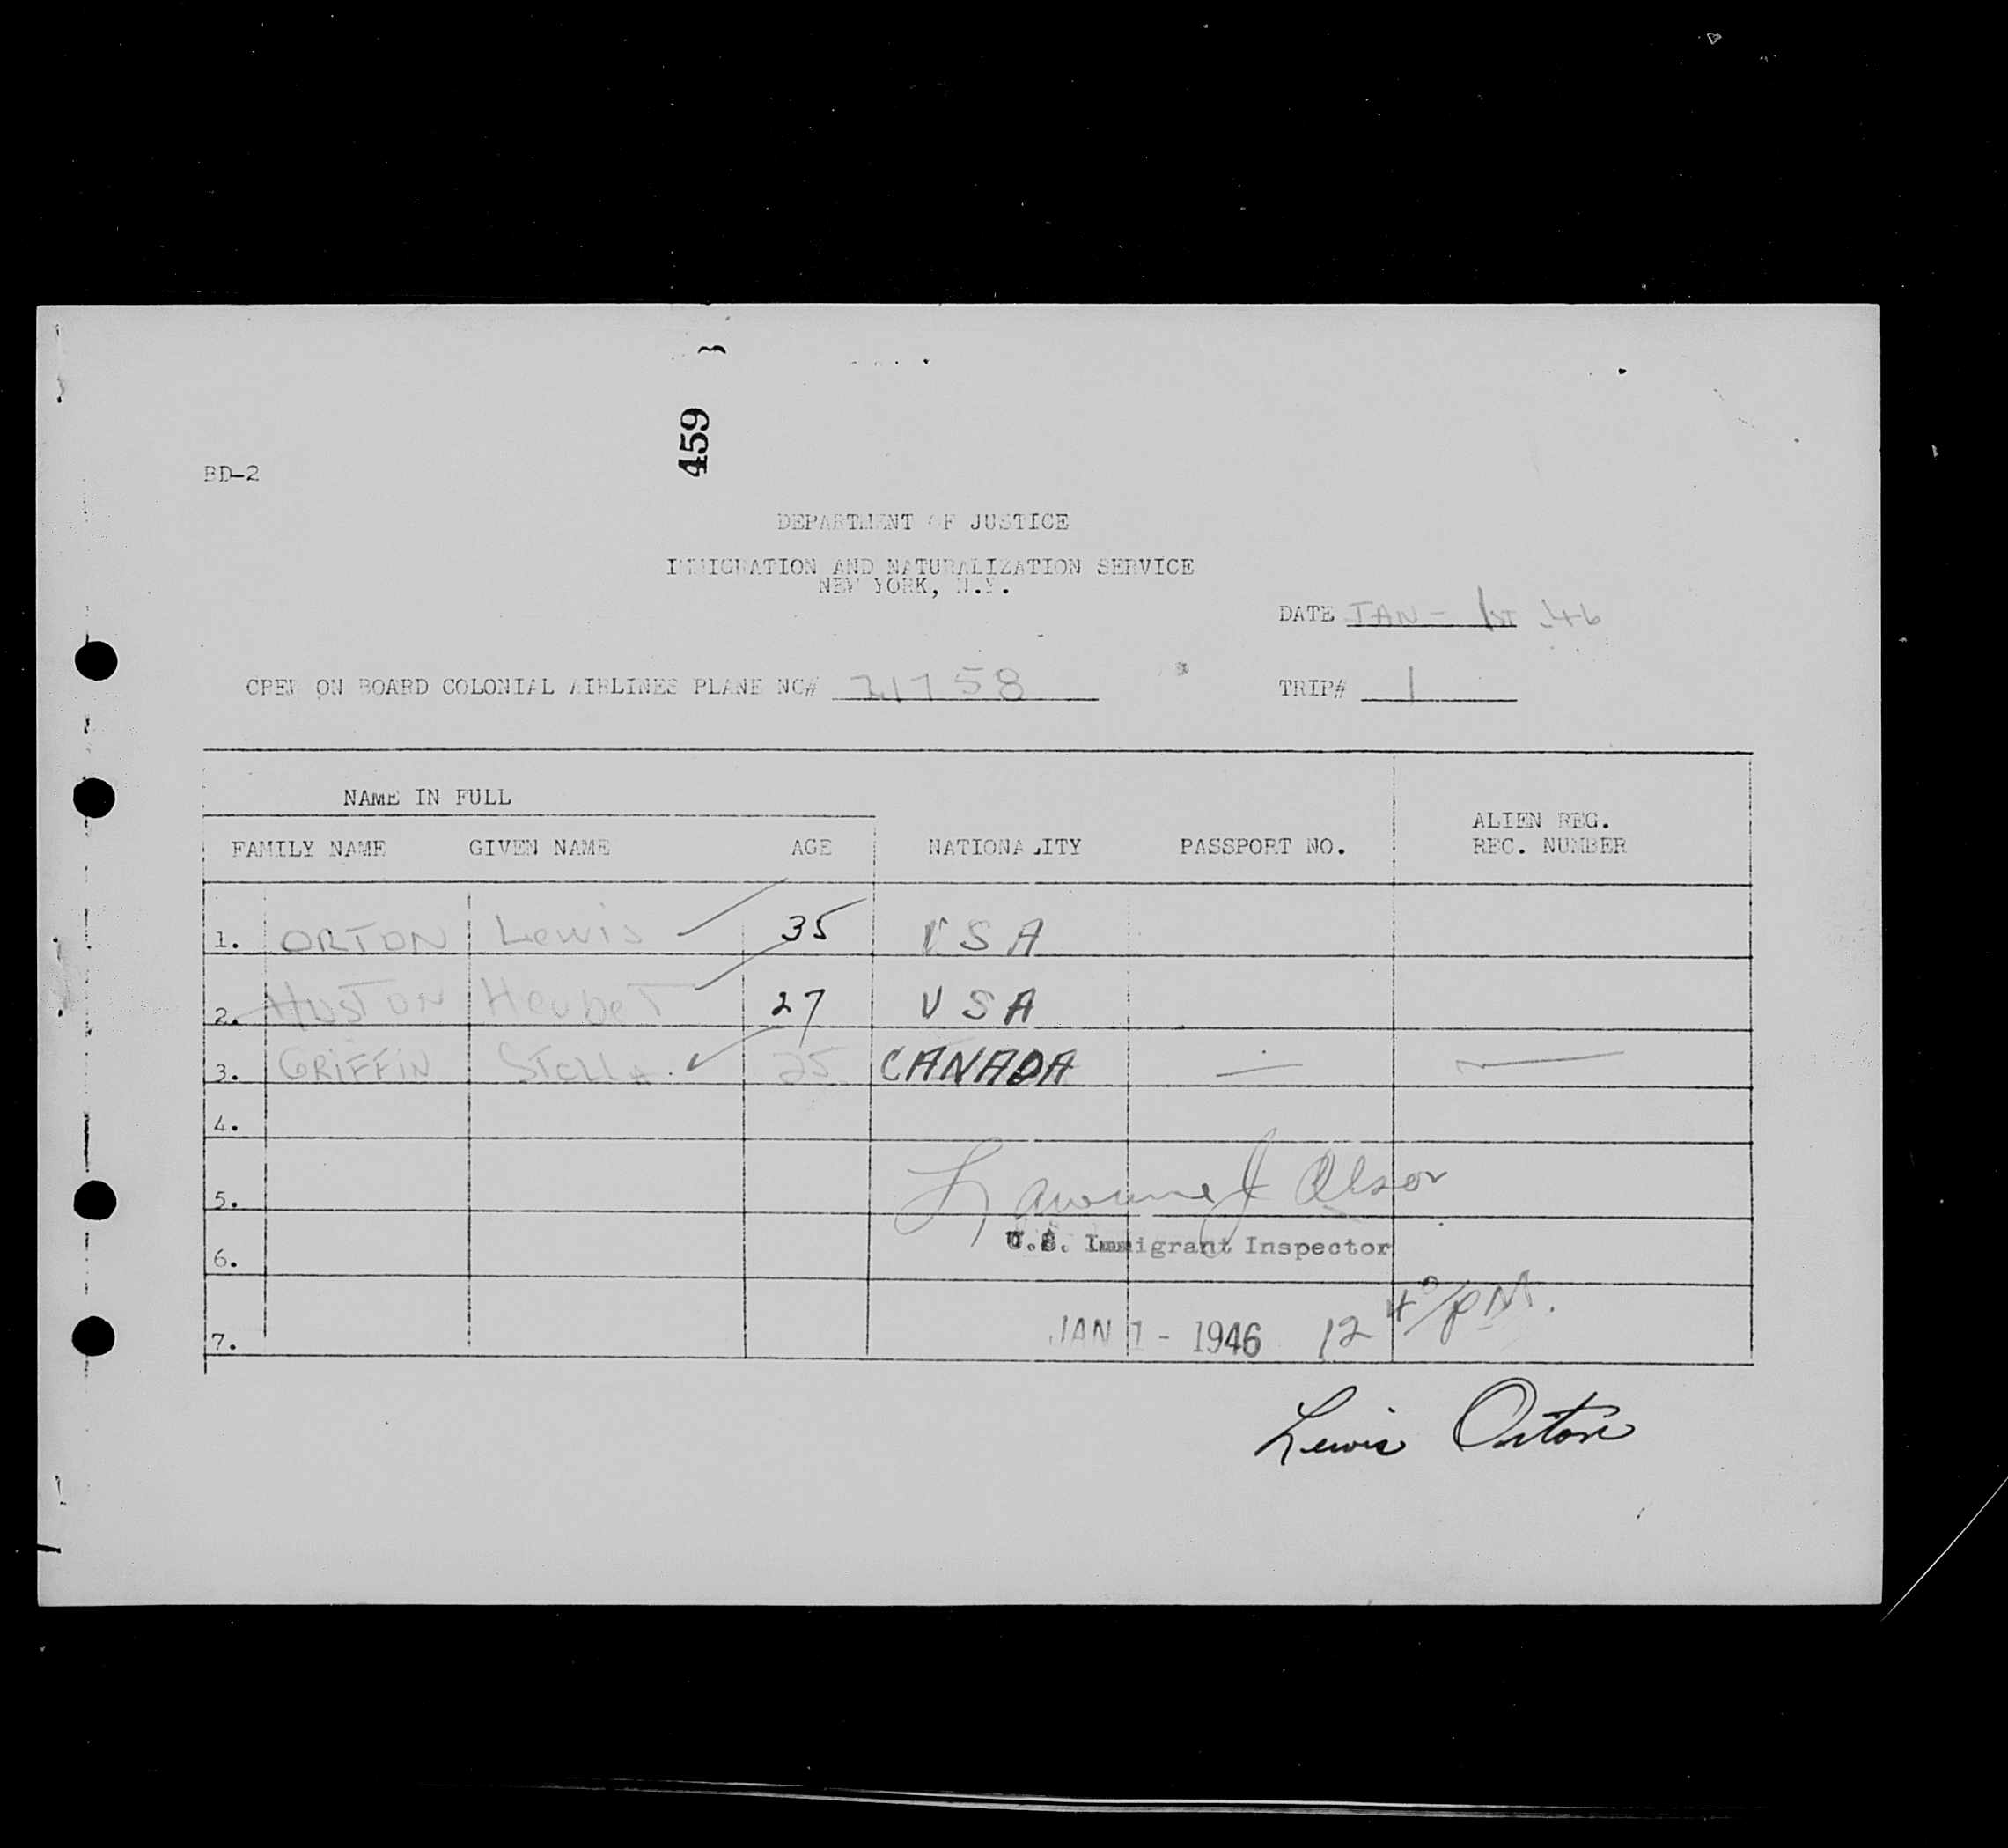 459
BD-2
DEPARTMENT OF JUSTICE
IMMIGRATION AND NATURALIZATION SERVICE
NEW YORK, N.Y.
DATE JAN - 1ST .46
CREW ON BOARD COLONIAL AIRLINES PLANE NC# 21758
TRIP# 1
NAME IN FULL
FAMILY NAME GIVEN NAME AGE NATIONALITY PASSPORT NO. ALIEN REG. REC. NUMBER
1. ORTON Lewis 35 USA
2. HUSTON 27 USA
3. GRIFFIN STELLA 25 CANADA — —
4.
5. Lawrence J Olson
6. U.S. Immigrant Inspector
7. JAN 1 - 1946 12 40/PM.
Lewis Orton